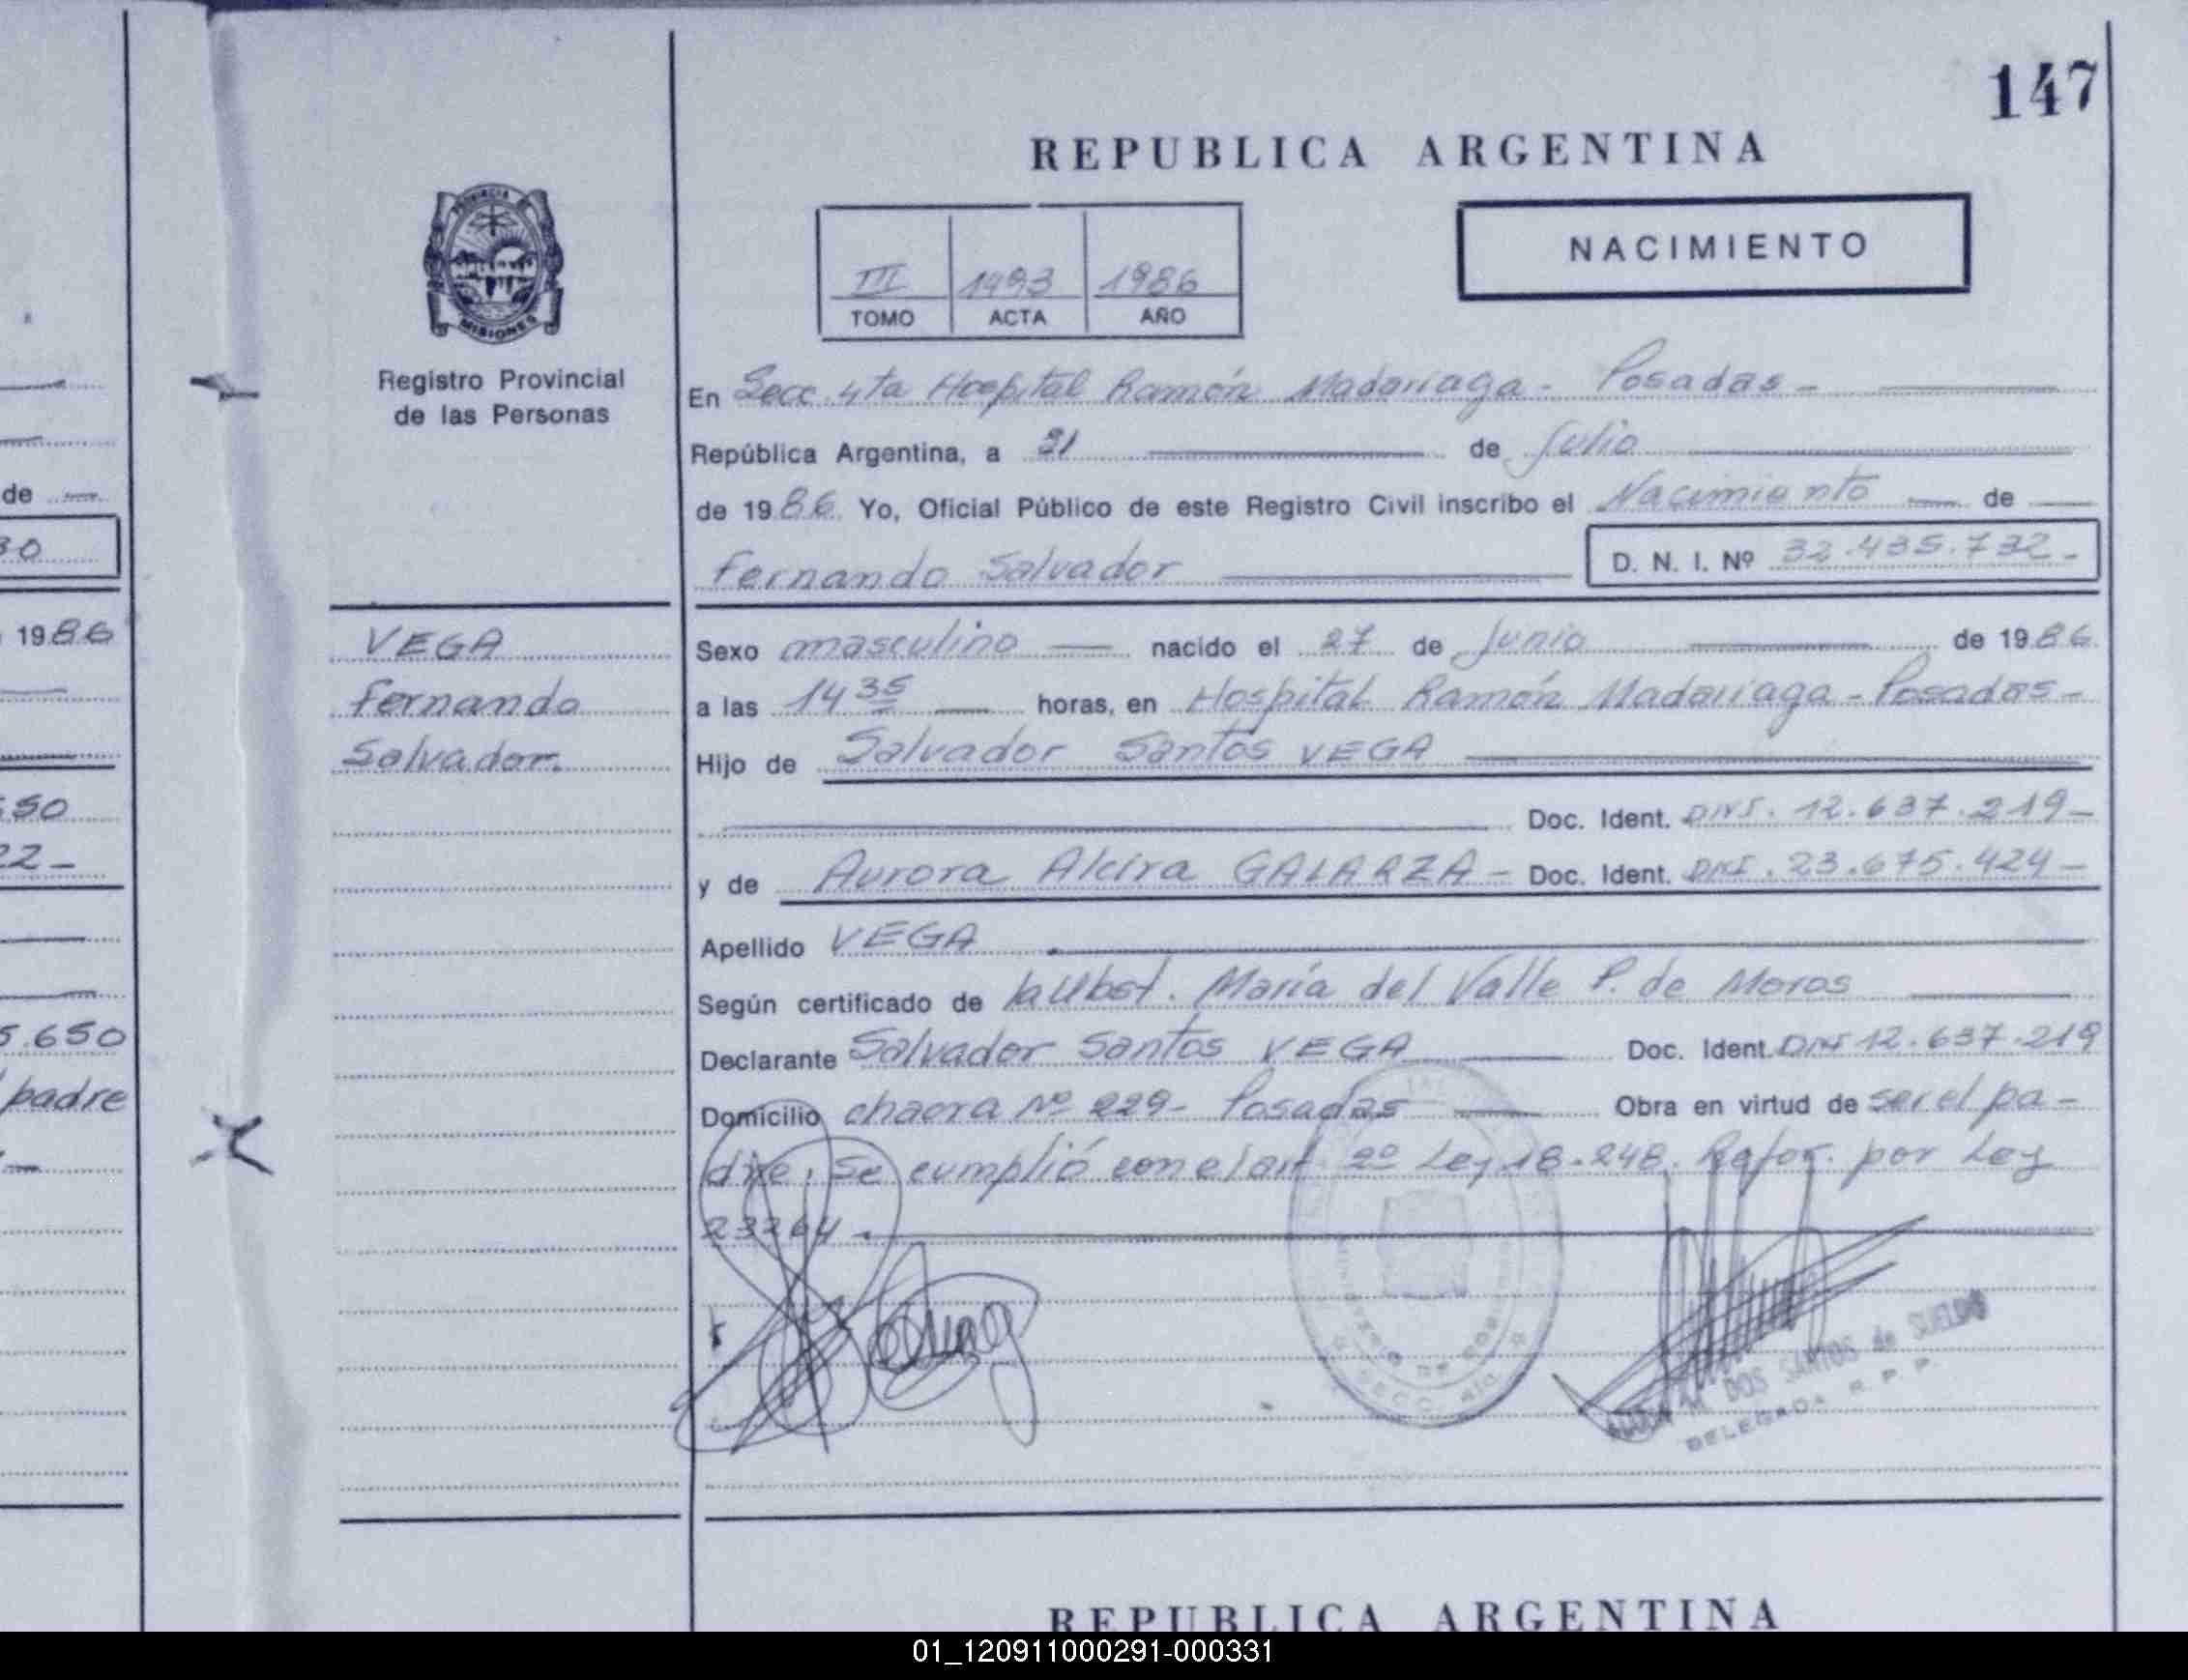 147
REPUBLICA ARGENTINA
NACIMIENTO
III 1493 1986
TOMO ACTA AÑO
PROVINCIA DE
MISIONES
Registro Provincial
de las Personas
En Secc. 4ta Hospital Ramón Madariaga - Posadas -
República Argentina, a 31 de Julio
de 1986. Yo, Oficial Público de este Registro Civil inscribo el Nacimiento de
Fernando Salvador D. N. I. Nº 32.435.732-
VEGA
Fernando
Salvador.
Sexo masculino nacido el 27 de Junio de 1986.
a las 14 35 horas, en Hospital Ramón Madariaga - Posadas-
Hijo de Salvador Santos VEGA
Doc. Ident. DNI. 12.637.219-
y de Aurora Alcira GALARZA - Doc. Ident. DNI. 23.675.424-
Apellido VEGA
Según certificado de la Obst. María del Valle P. de Moros
Declarante Salvador Santos VEGA Doc. Ident. DNI 12.637.219
Domicilio chacra Nº 229- Posadas Obra en virtud de ser el pa-
dre; Se cumplió con el art 2º Ley 18.248. Refor. por Ley
23264.
DOS SANTOS de SUELDO
DELEGADA R. P. P.
de
30
1986
650
22-
5.650
padre
REPUBLICA ARGENTINA
01_120911000291-000331